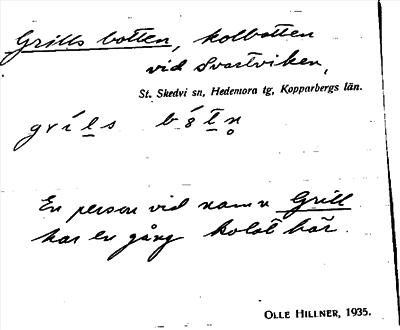 Grills botten, kolbotten
vid Svartviken,
St. Skedvi sn, Hedemora tg, Kopparbergs län.
gríls
En person vid namn Grill
har en gång kolat här.
OLLE HILLNER, 1935.